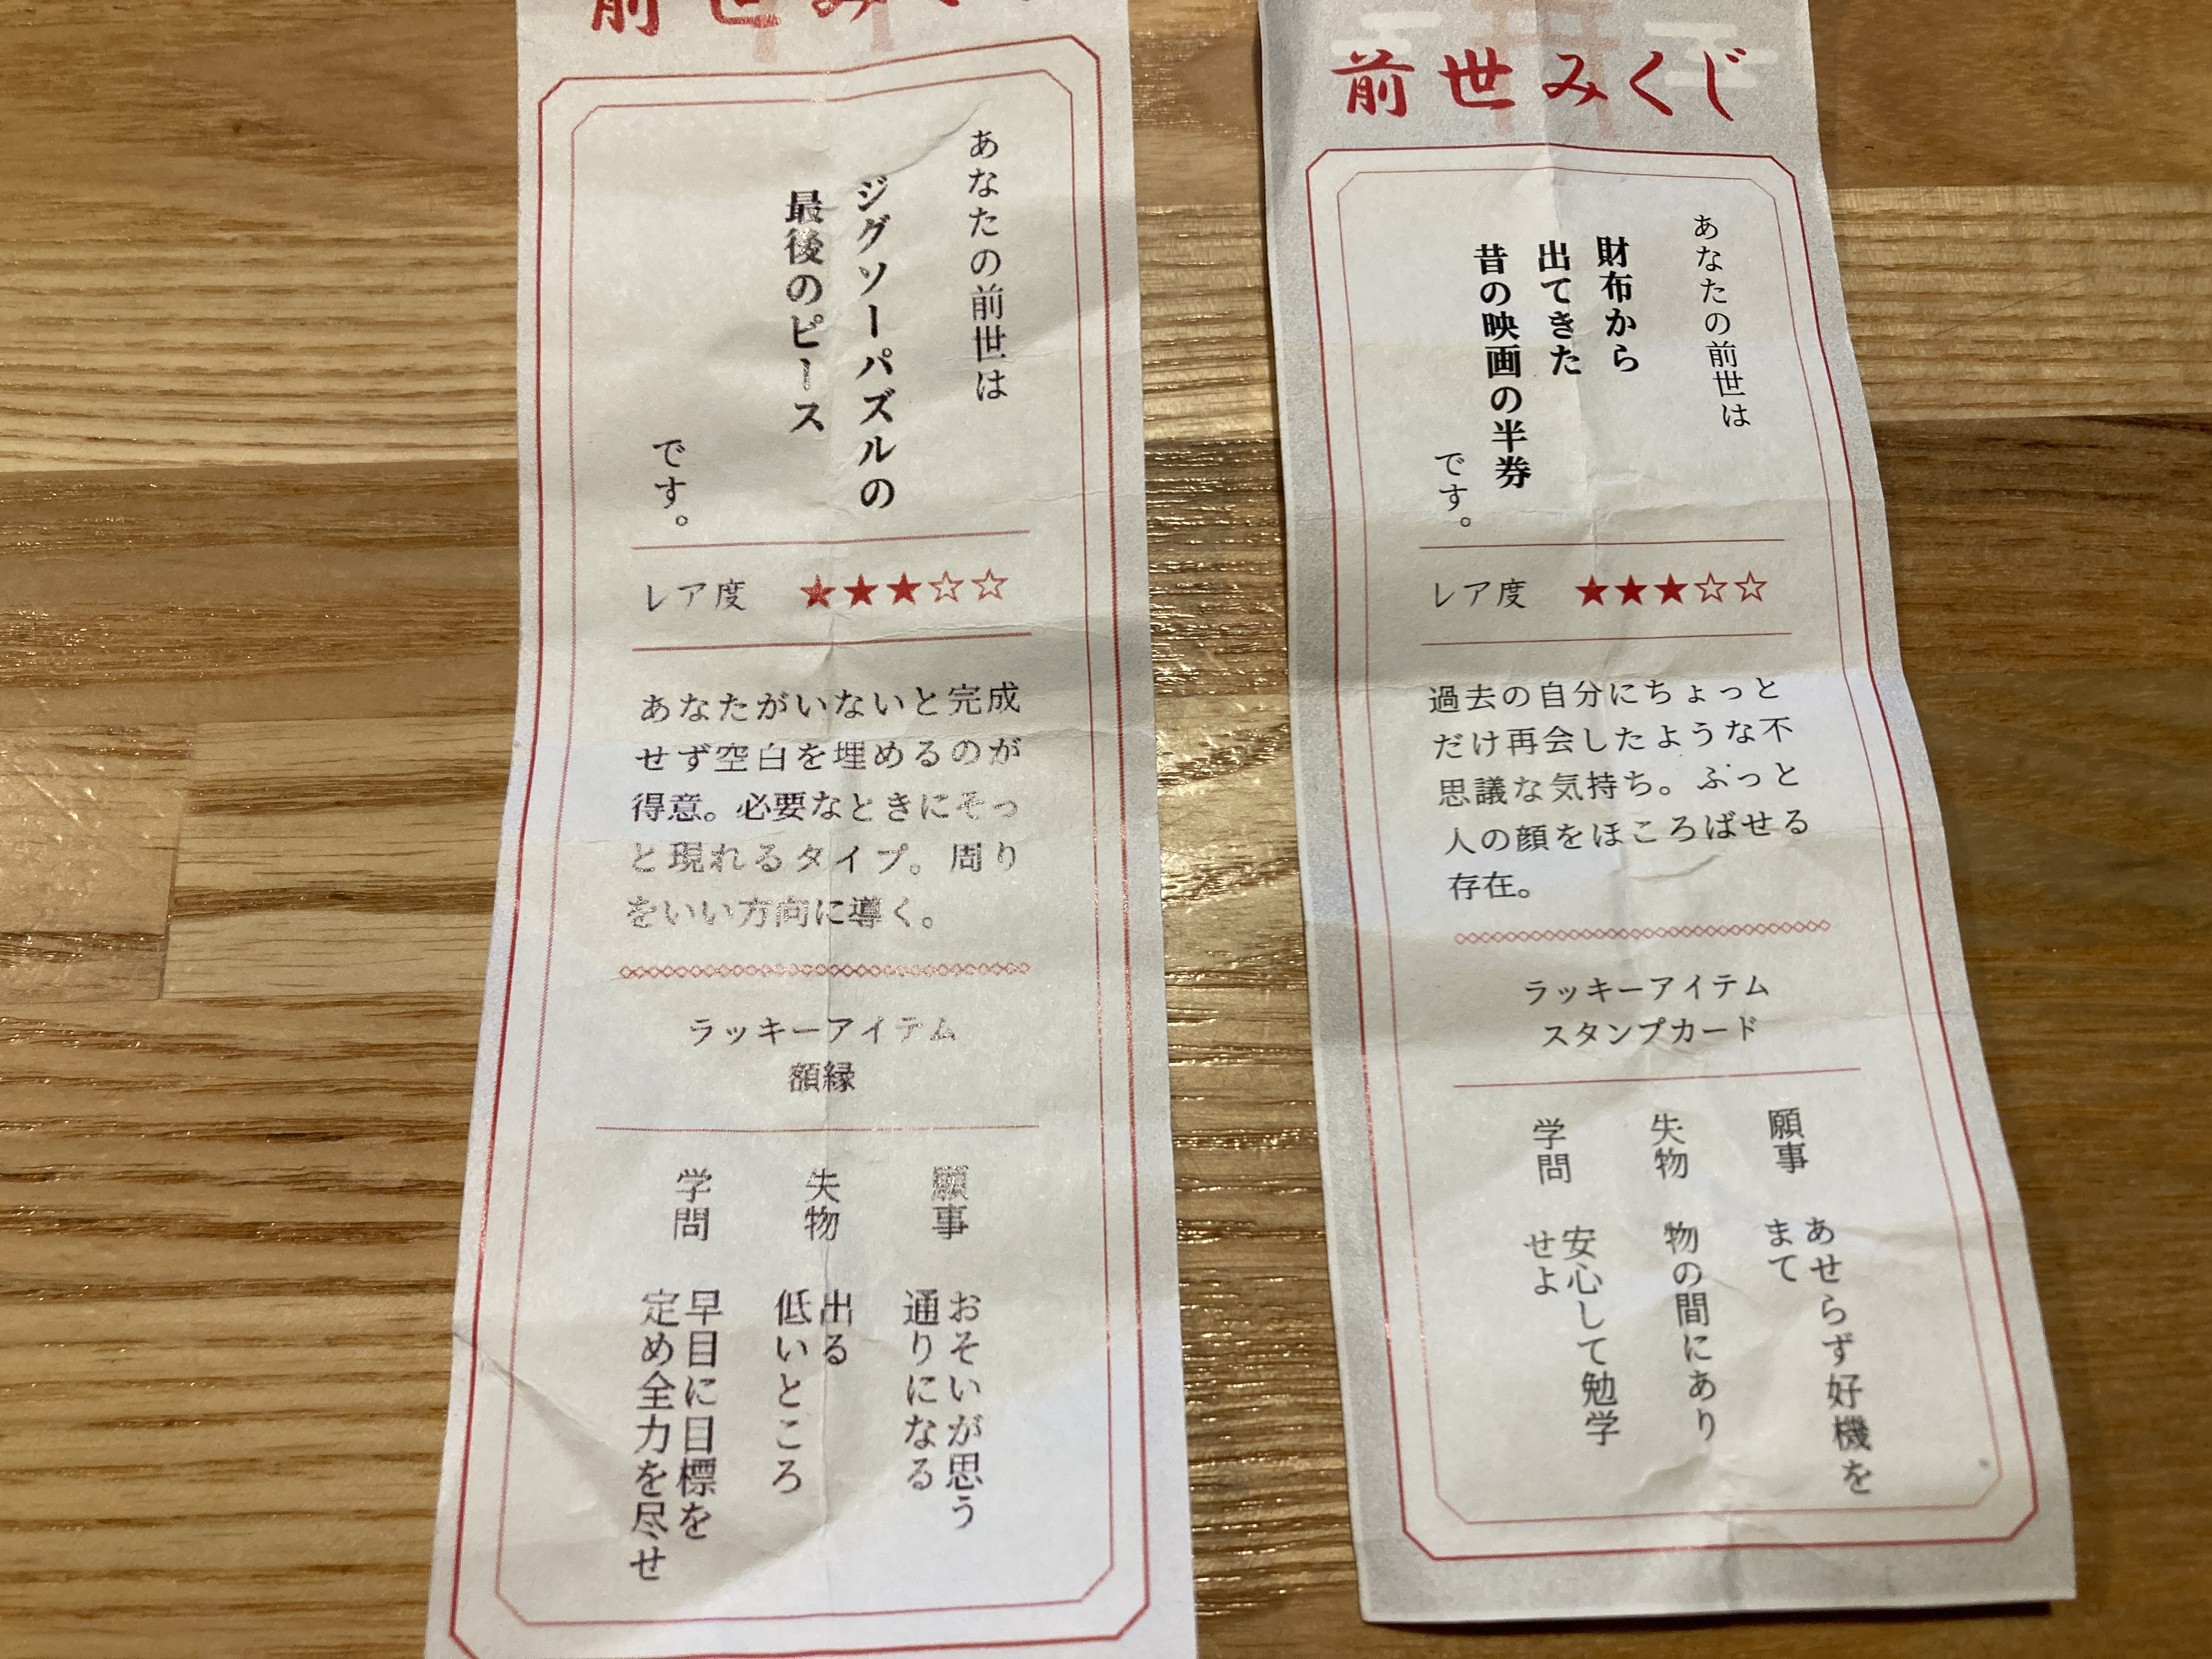 前世みくじ
あなたの前世は
ジグソーパズルの
最後のピース
です。
レア度 ★★★☆☆
あなたがいないと完成
せず空白を埋めるのが
得意。必要なときにそっ
と現れるタイプ。周り
をいい方向に導く。
ラッキーアイテム
額縁
願事 おそいが思う
通りになる
失物 出る
低いところ
学問 早目に目標を
定め全力を尽せ
前世みくじ
あなたの前世は
財布から
出てきた
昔の映画の半券
です。
レア度 ★★★☆☆
過去の自分にちょっと
だけ再会したような不
思議な気持ち。ふっと
人の顔をほころばせる
存在。
ラッキーアイテム
スタンプカード
願事 あせらず好機を
まて
失物 物の間にあり
学問 安心して勉学
せよ